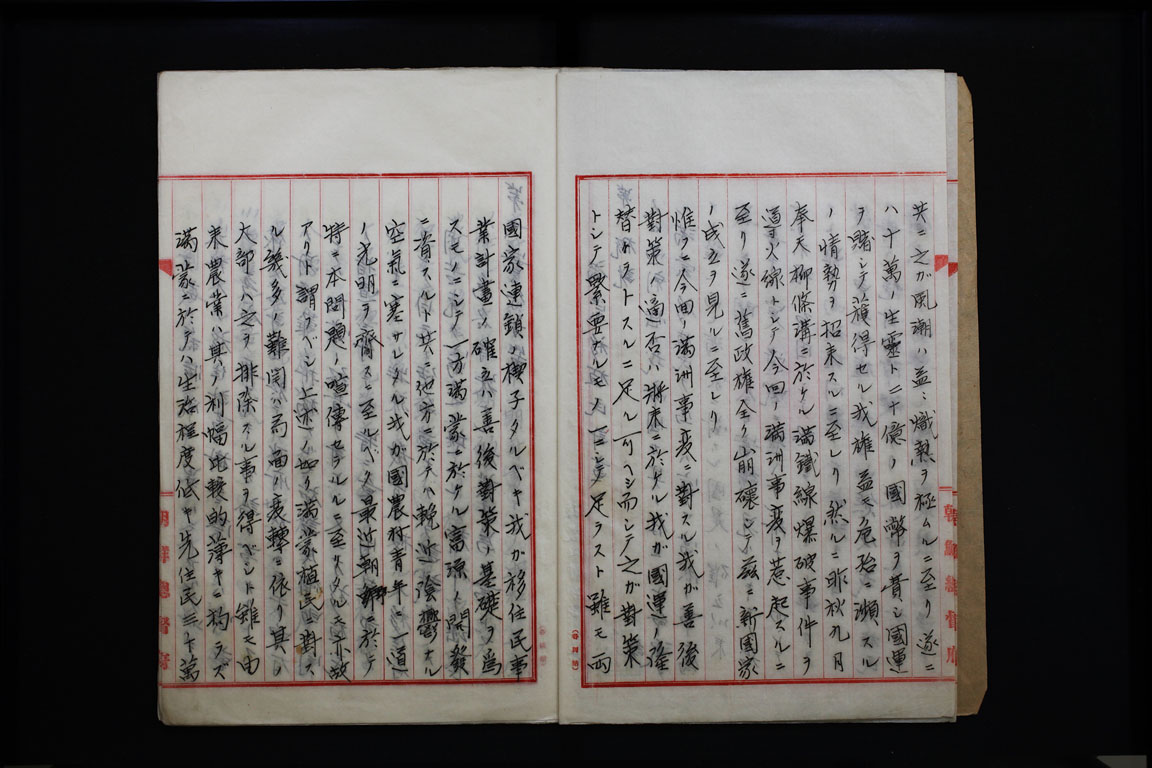 共ニ之ガ風潮ハ益々熾烈ヲ極ムルニ至リ遂ニ
八十萬ノ生靈ト二十億ノ國幣ヲ費シ國運
ヲ賭シテ獲得セル我雄益モ危殆ニ瀕スル
ノ情勢ヲ招来スルニ至レリ然ルニ昨秋九月
奉天柳條溝ニ於ケル滿鐵線爆破事件ヲ
導火線トシテ今回ノ滿洲事変ヲ惹起スルニ
至リ遂ニ舊政権全ク崩壊シテ茲ニ新國家
ノ成立ヲ見ルニ至レリ
惟フニ今回ノ滿洲事変ニ對スル我ガ善後
對策ノ適否ハ将来ニ於ケル我ガ國運ノ隆
替ヲトスルニ足ル可ヘシ而シテ之ガ對策
トシテ緊要ナルモノ一ニシテ足ラスト雖モ両
國家連鎖ノ楔子タルベキ我ガ移住民事
業計畫ノ確立ハ善後對策ノ基礎ヲ為
スモノニシテ一方滿蒙ニ於ケル富源ノ開發
ニ資スルト共ニ他方ニ於テハ輓近陰鬱ナル
空氣ニ塞サレタル我ガ國農村青年ニ一道
ノ光明ヲ齎スニ至ルベク最近朝鮮ニ於テ
特ニ本問題ノ喧傳セラルルニ至リタルモ亦故
アリト謂フベシ上述ノ如ク滿蒙植民ニ對ス
ル幾多ノ難関ハ局面ノ変轉ニ依リ其ノ
大部ハ之ヲ排除スル事ヲ得ベシト雖モ由
来農業ハ其ノ利幅比較的薄キニ拘ラズ
滿蒙ニ於テハ生活程度低キ先住民三十萬
朝鮮總督府
朝鮮總督府